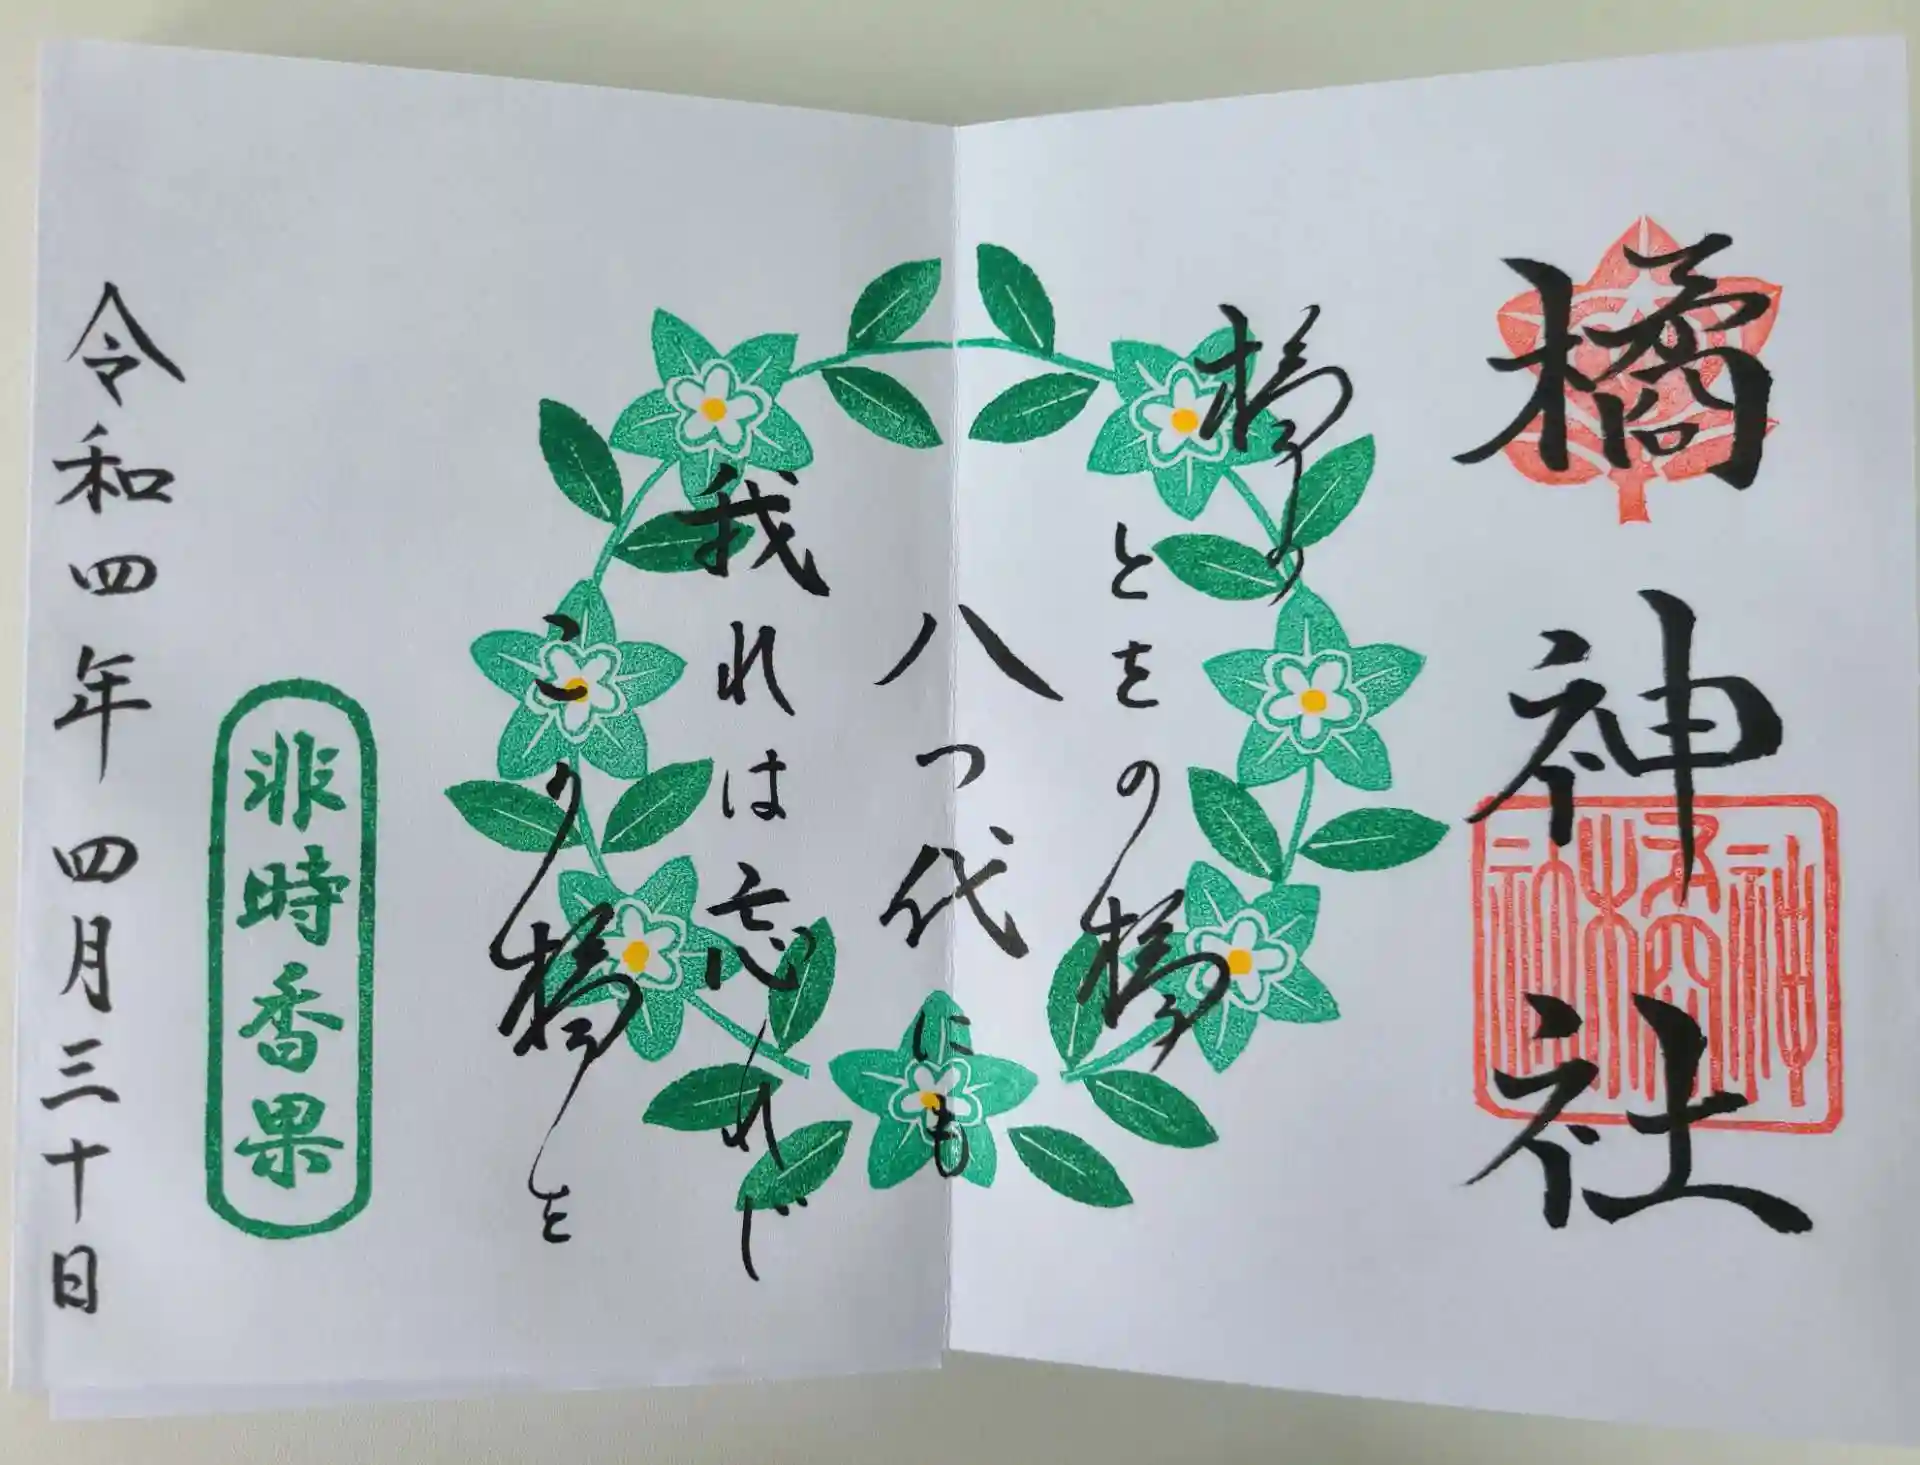 橘神社
橘神社
橘の
とをの橘
八つ代にも
我れは忘れじ
この橘を
非時香果
令和四年四月三十日